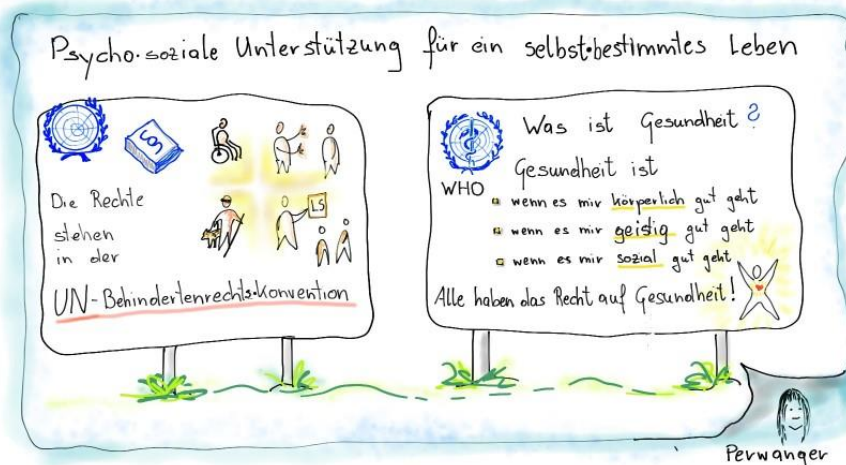 Psycho·soziale Unterstützung für ein selbst·bestimmtes Leben
Die Rechte
stehen
in der
UN-Behindertenrechts·Konvention
LS
WHO
Was ist Gesundheit?
Gesundheit ist
wenn es mir körperlich gut geht
wenn es mir geistig gut geht
wenn es mir sozial gut geht
Alle haben das Recht auf Gesundheit!
Perwanger